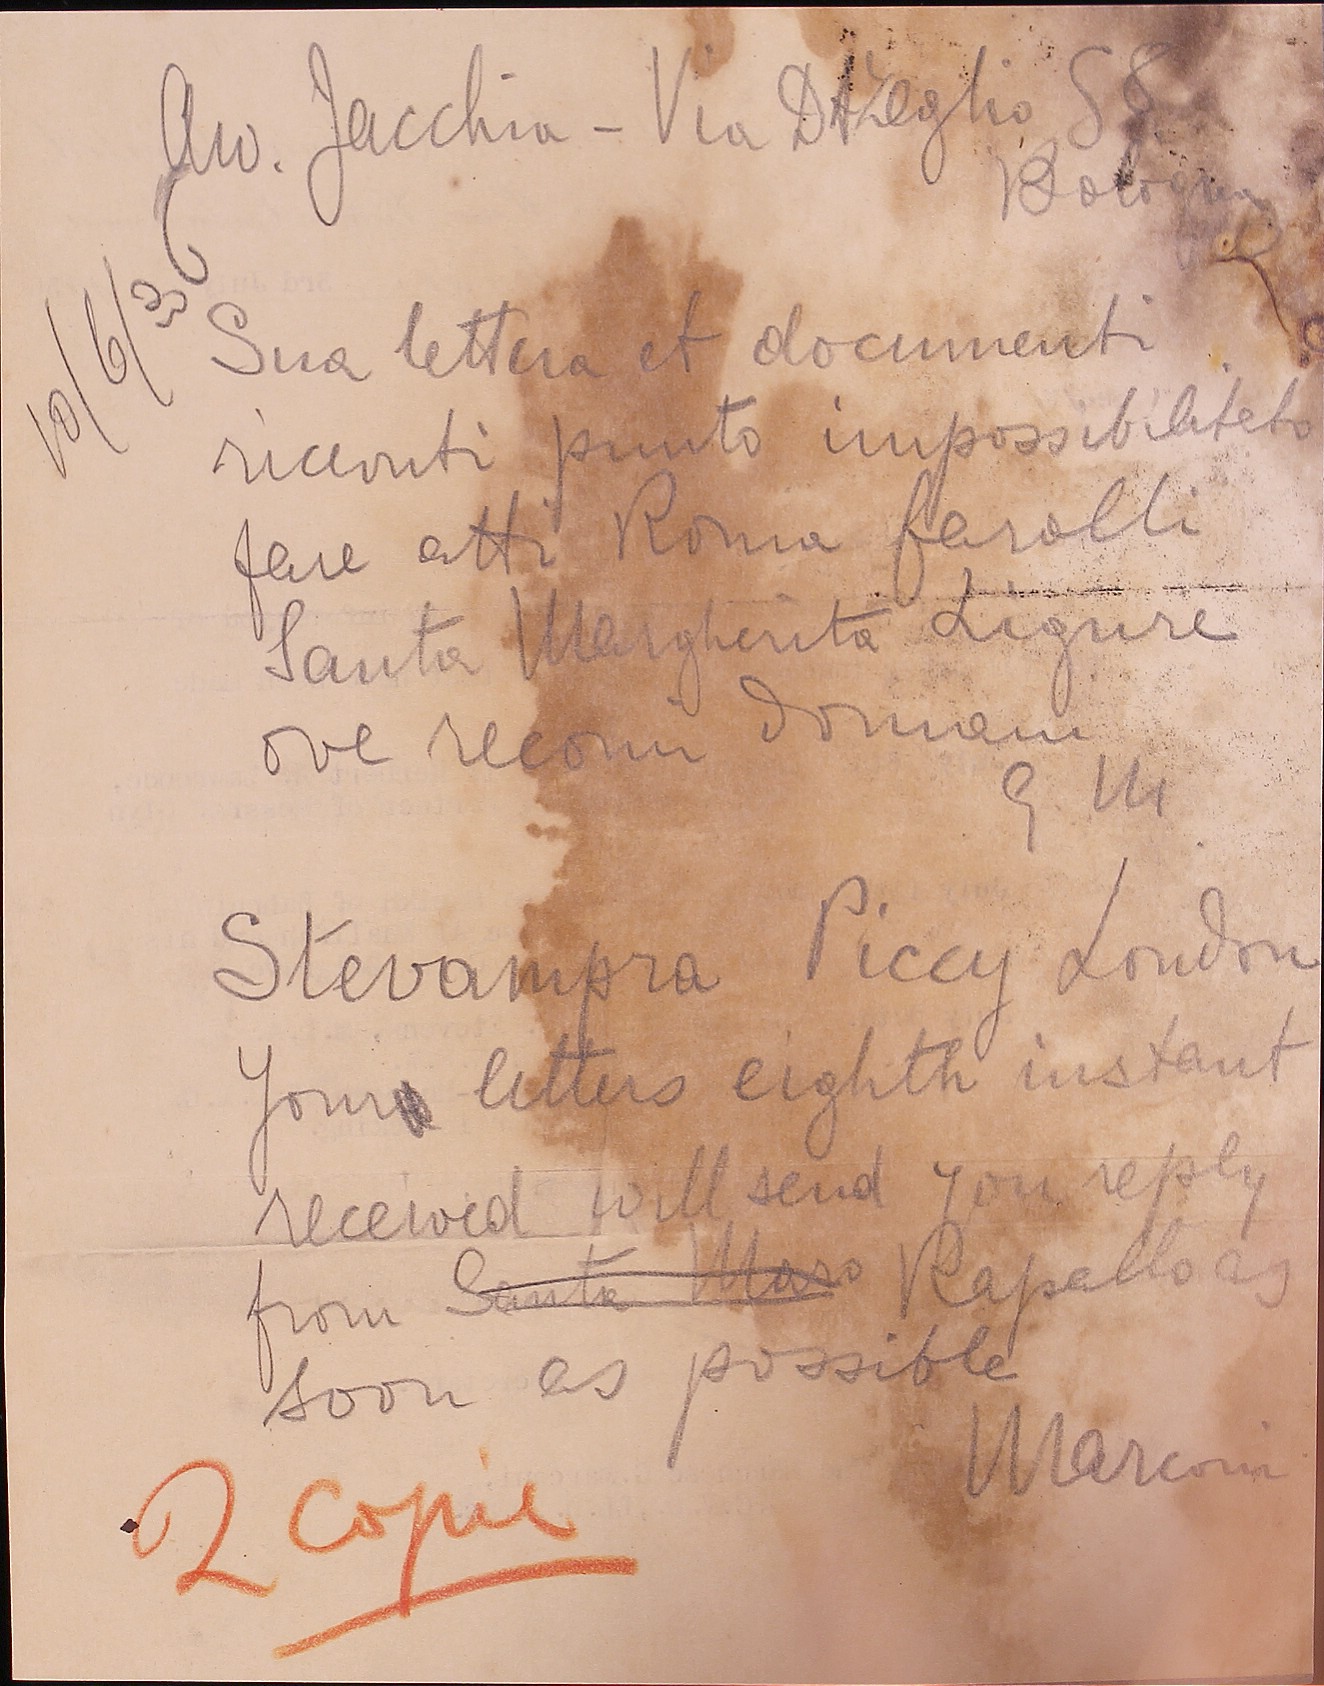 Avv. Jacchia - Via D'Azeglio 58
Bologna
10/6/36
Sua lettera et documenti
ricevuti punto impossibilitato
fare atti Roma farolli
Santa Margherita Ligure
ove recomi domani
G. M.
Stevampra Piccy London
Your letters eighth instant
received will send you reply
from Santa Marg Rapallo as
soon as possible
Marconi
2 copie